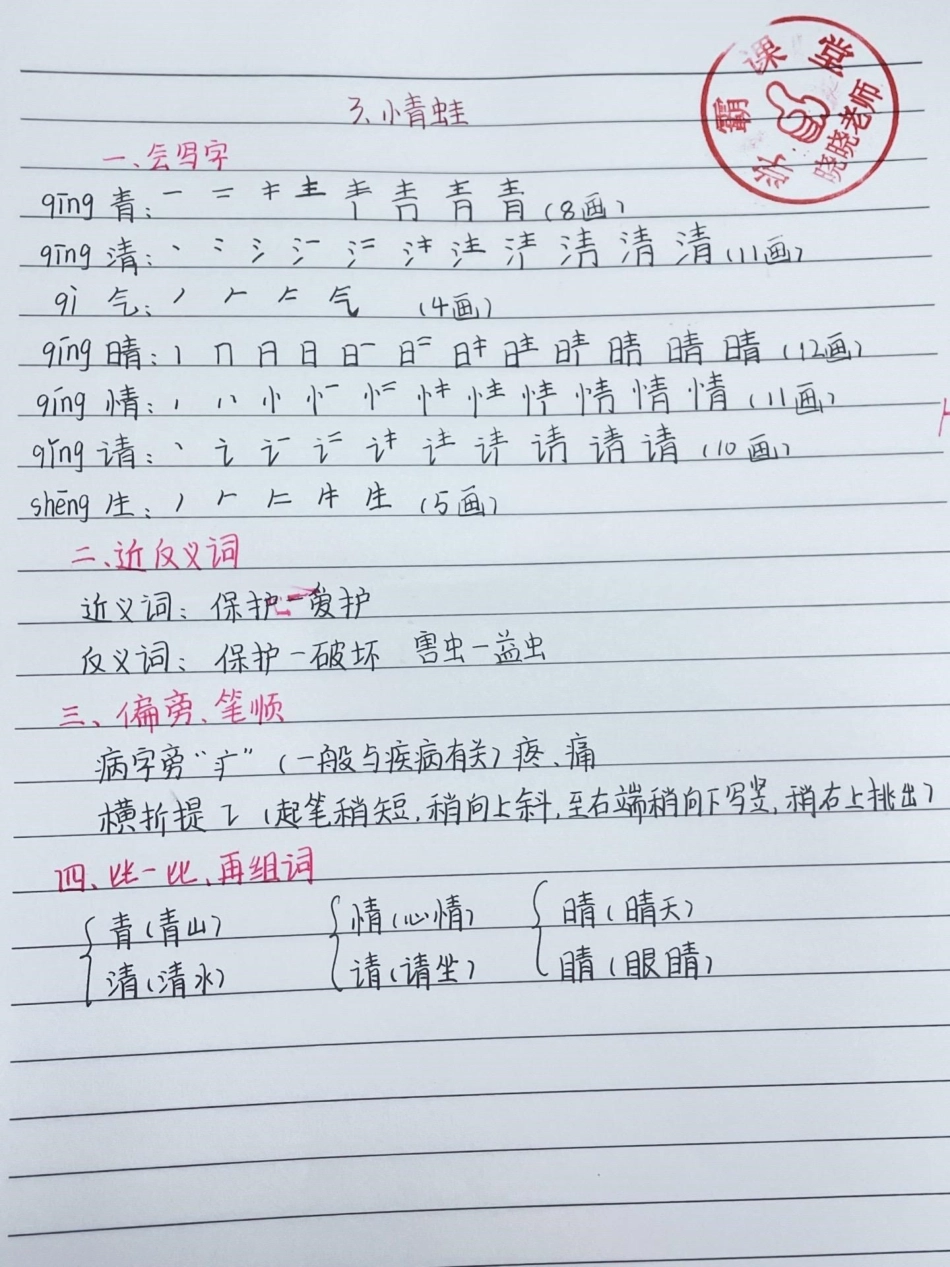 学霸课堂
晓晓老师
3、小青蛙
一、会写字
qīng 青：一 二 キ 龶 青 (8画)
qīng 清：丶 冫 氵 清 清 清 (11画)
qì 气：丿 𠂉 气 (4画)
qíng 晴：丨 冂 日 日 晴 晴 晴 (12画)
qíng 情：丶 忄 情 情 情 (11画)
qǐng 请：丶 讠 请 请 请 (10画)
shēng 生：丿 𠂉 生 (5画)
二、近反义词
近义词：保护－爱护
反义词：保护－破坏 害虫－益虫
三、偏旁、笔顺
病字旁“疒”(一般与疾病有关)疼、痛
横折提 ㇊ (起笔稍短,稍向上斜,至右端稍向下写竖,稍右上挑出)
四、比一比、再组词
青(青山) 情(心情) 晴(晴天)
清(清水) 请(请坐) 睛(眼睛)